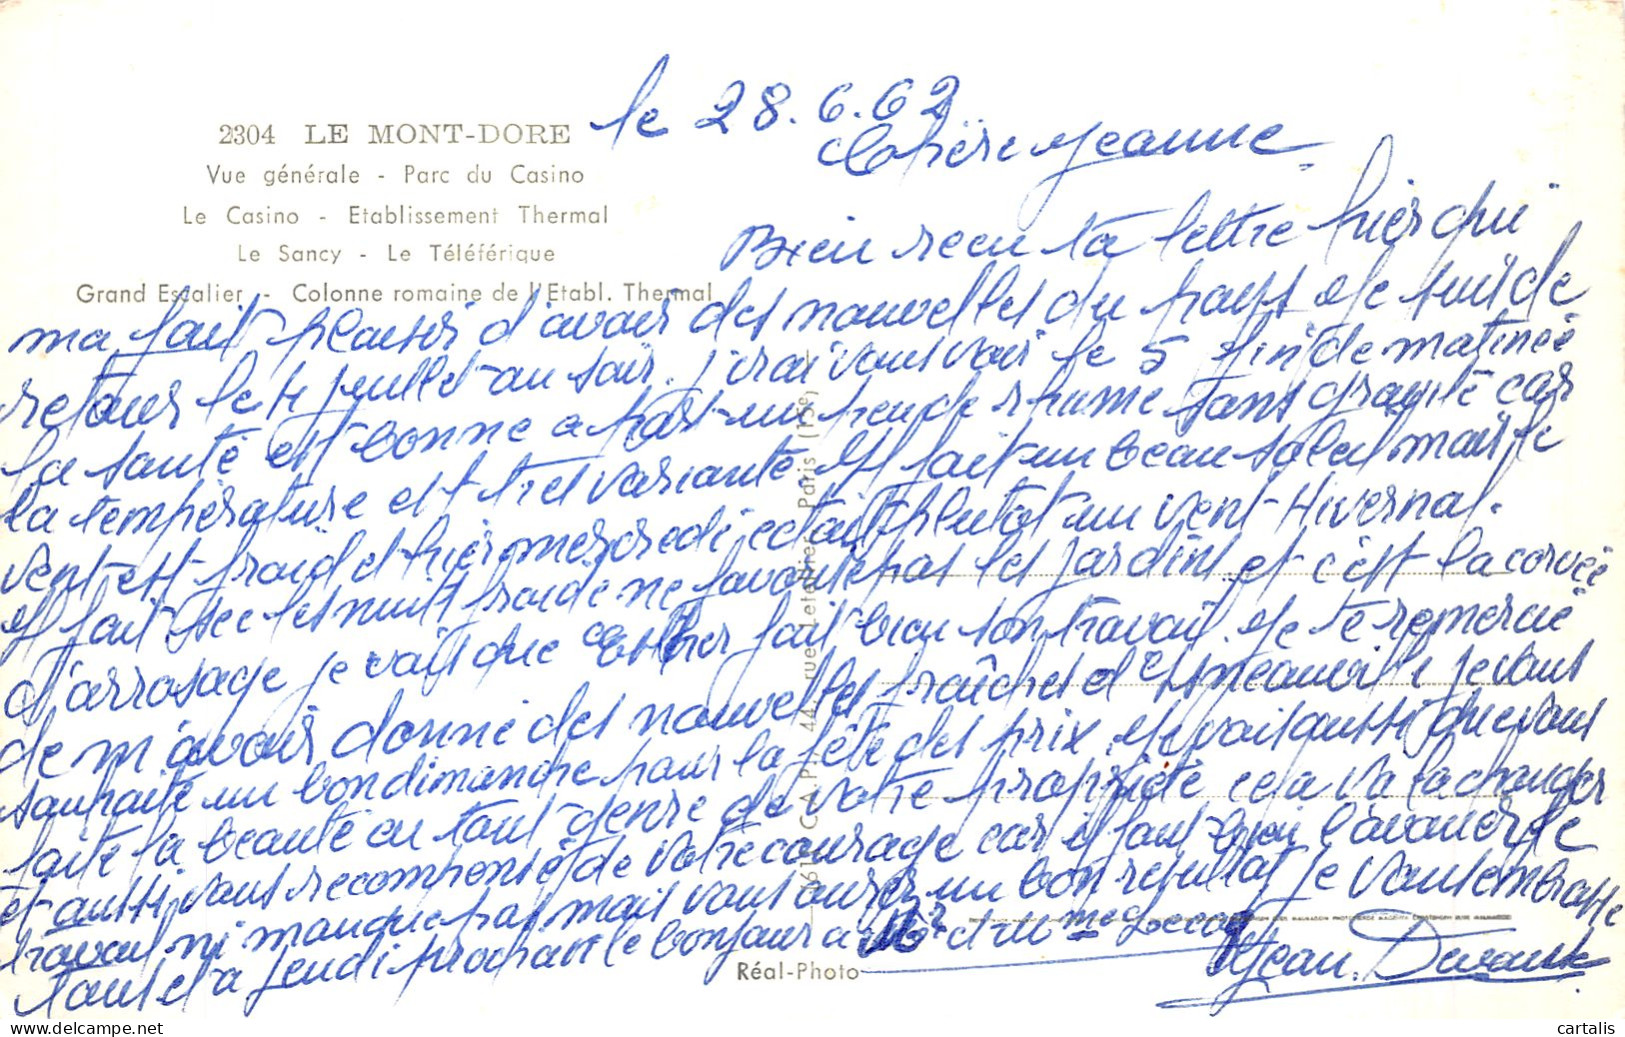 le 28.6.62
2304 LE MONT-DORE
Vue générale - Parc du Casino
Le Casino - Etablissement Thermal
Le Sancy - Le Téléférique
Grand Escalier - Colonne romaine de l'Etabl. Thermal
chère Jeanne
Bien recu ta lettre hier qui
ma fait plaisir d'avoir des nouvelles du pays je suis de
retour le 4 juillet au soir. j'irai vous voir le 5 fin de matinée
la santé est bonne a part un peu de rhume sans gravité car
la température est très variante. Il fait un beau soleil mais le
vent est froid et hier mercredi cetait plutot un vent Hivernal.
Il fait sec les nuit froide ne favorise pas les jardins et c'est la corvée
d'arrosage je vois que fait bien son travail. Je te remercie
de m'avoir donné des nouvelles fraîches d' je vous
souhaite un bon dimanche pour la fête des prix. Je vois aussi que vous
faite la beauté en tout genre de votre propriété cela va la changer
et aussi vous recompensé de votre courage car il faut bien l'avouer le
travail ni manque pas mais vous aurez un bon resultat je vous embrasse
tous et a jeudi prochain le bonjour a Mr et Mme
Jean
44, rue Letellier, Paris (15e)
Réal-Photo
cartalis